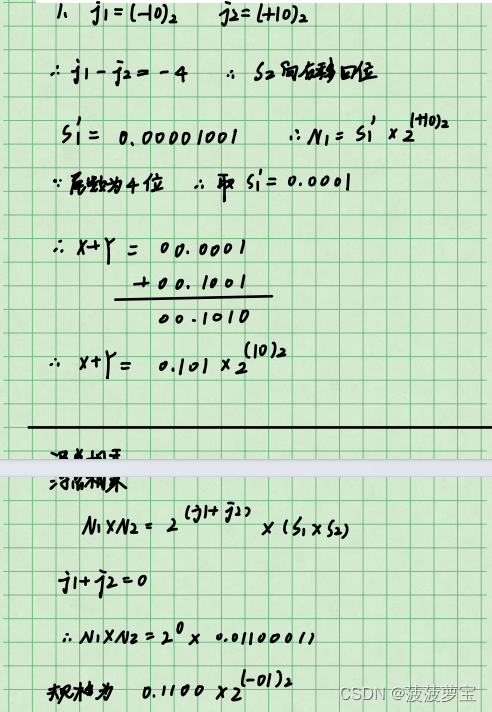 1. j1=(-10)₂ j2=(+10)₂
∴ j1-j2=-4 ∴ S2向右移四位
S1'= 0.00001001 ∴ N1= S1' ×2^(+10)₂
∵ 尾数为4位 ∴ 取 S1'=0.0001
∴ X+Y = 00.0001
+ 00.1001
00.1010
∴ X+Y= 0.101 ×2^(10)₂
N1×N2= 2^(j1+j2) × (S1×S2)
j1+j2=0
∴ N1×N2=2^0 × 0.01100011
规格为 0.1100 ×2^(-01)₂
CSDN @菠菠萝宝